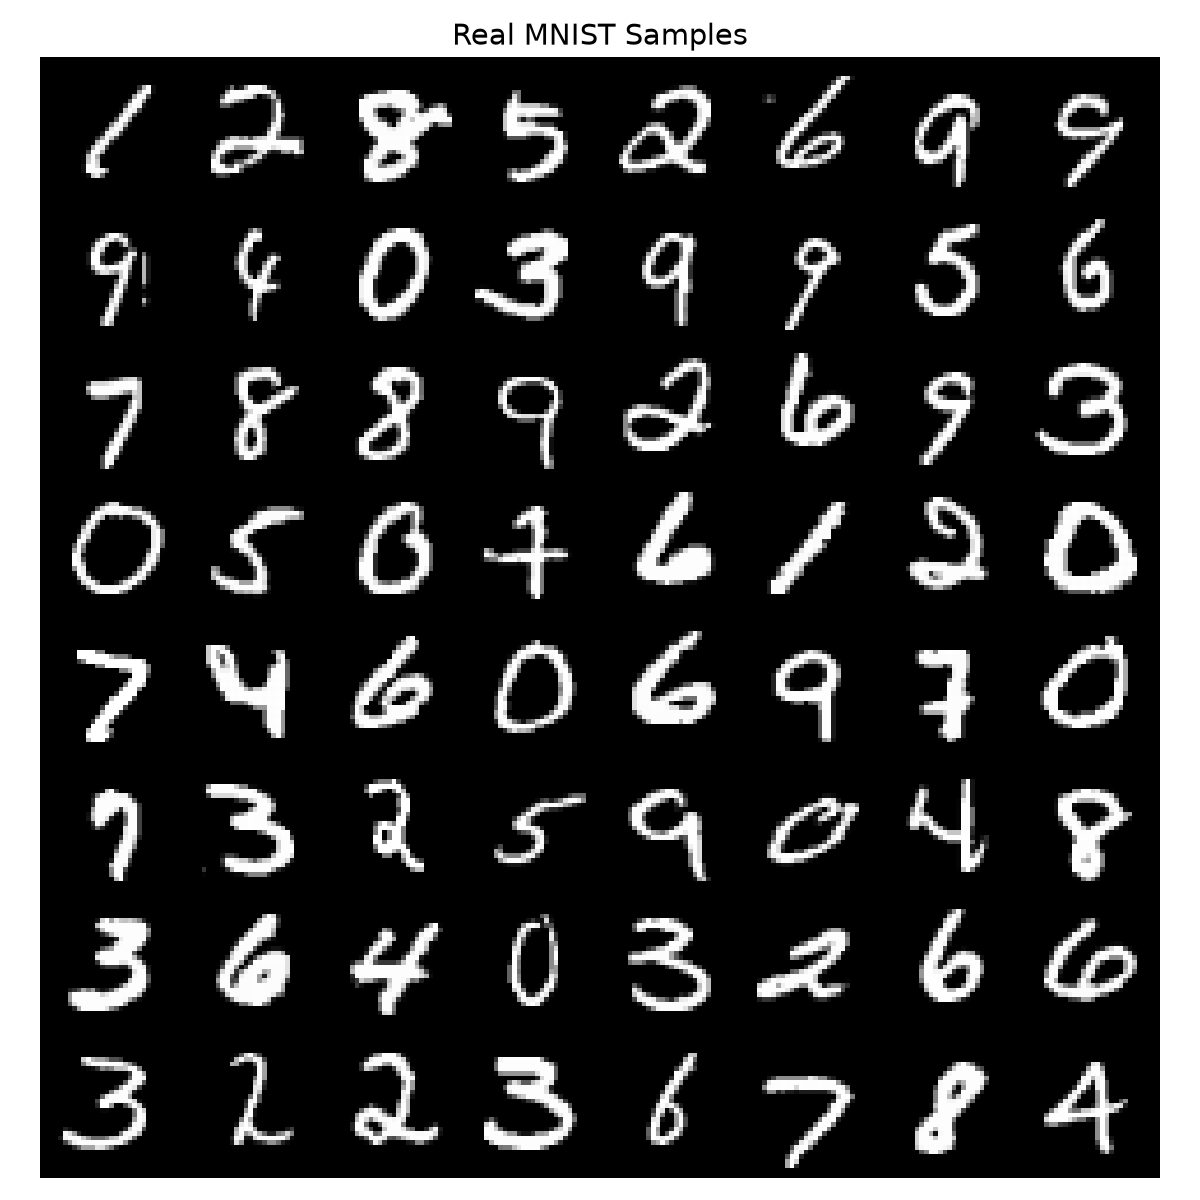 Real MNIST Samples
1 2 8 5 2 6 9 9
9 4 0 3 9 9 5 6
7 8 8 9 2 6 9 3
0 5 0 7 6 1 2 0
7 4 6 0 6 9 7 0
7 3 2 5 9 0 4 8
3 6 4 0 3 2 6 6
3 2 2 3 6 7 8 4